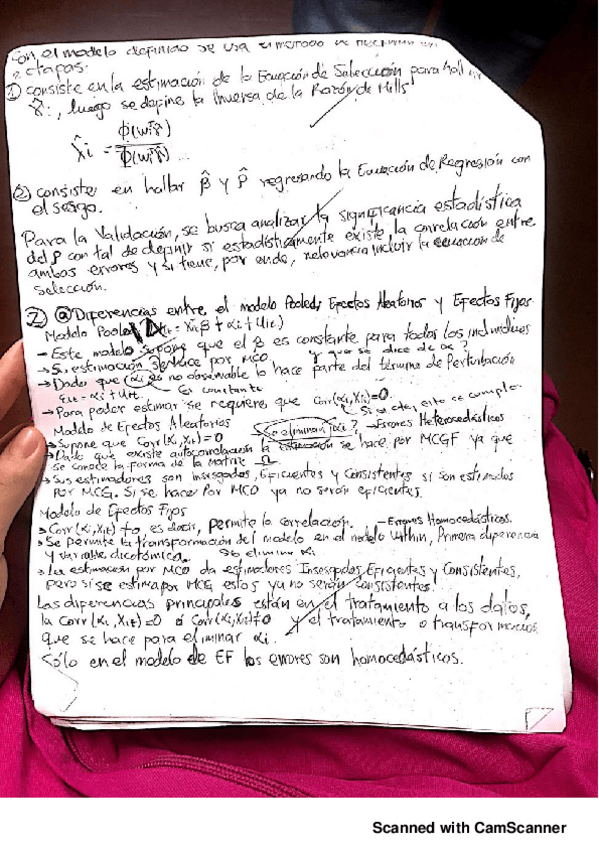 Con el modelo definido se usa el método de Heckman en
2 etapas.
① consiste en la estimación de la Ecuación de Selección para hallar
γ̂i, luego se define la inversa de la Razón de Mills
λ̂i = ϕ(wi'γ̂) / Φ(wi'γ̂)
② consiste en hallar β̂ y ρ̂ regresando la Ecuación de Regresión con
el sesgo.
Para la Validación, se busca analizar la significancia estadística
del ρ con tal de definir si estadísticamente existe la correlación entre
ambos errores y si tiene, por ende, relevancia incluir la ecuación de
Selección.
② ⓐ Diferencias entre el modelo Pooled, Efectos Aleatorios y Efectos Fijos
Modelo Pooled = Xit β + αi + Uit)
→ Este modelo supone que el β es constante para todos los individuos
→ Su estimación se hace por MCO. Y que se dice de α?
→ Dado que αi es no observable lo hace parte del término de Perturbación
Eit = αi + Uit. Es constante
→ Para poder estimar se requiere que Corr(αi, Xit)=0. Si esto se cumple
Modelo de Efectos Aleatorios Se eliminan αi? → Errores Heterocedásticos
→ Supone que Corr(αi, Xit)=0
→ Dado que existe autocorrelación la estimación se hace por MCGF ya que
se conoce la forma de la matriz Ω
→ Sus estimadores son insesgados, Eficientes y Consistentes si son estimados
por MCG. Si se hace por MCO ya no serán eficientes.
Modelo de Efectos Fijos
→ Corr(αi, Xit) ≠ 0 es decir, permite la correlación. – Errores Homocedásticos.
→ Se permite la transformación del modelo en el modelo within, Primera diferencia
y variable dicotómica. Se elimina αi
→ La estimación por MCO da estimadores Insesgados, Eficientes y Consistentes,
pero si se estima por MCG estos ya no serán consistentes.
Las diferencias principales están en el tratamiento a los datos,
la Corr(αi, Xit)=0 ó Corr(αi, Xit)≠0 y el tratamiento o transformación
que se hace para eliminar αi.
Sólo en el modelo de EF los errores son homocedásticos.
Scanned with CamScanner